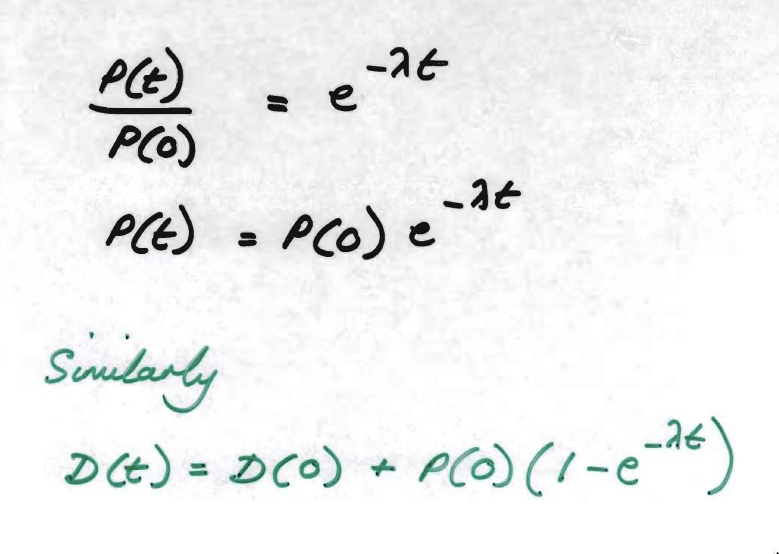 P(t)/P(0) = e^{-λt}
P(t) = P(0) e^{-λt}
Similarly
D(t) = D(0) + P(0) (1 - e^{-λt})